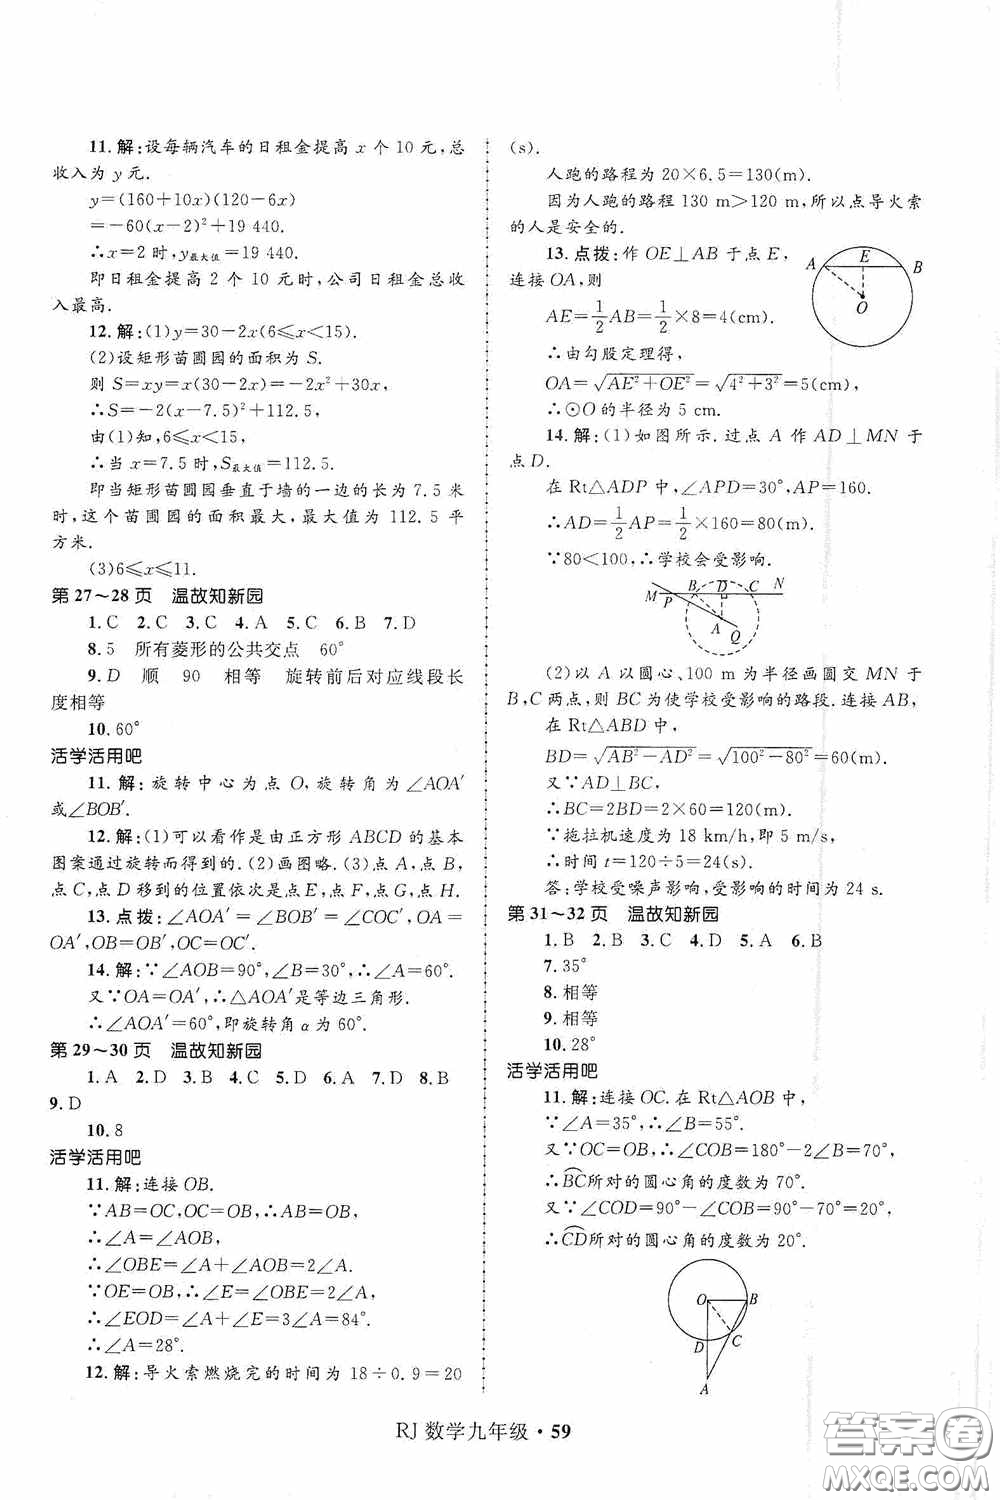 11. 解:设每辆汽车的日租金提高 x 个 10 元,总
收入为 y 元.
y=(160+10x)(120-6x)
=-60(x-2)²+19 440.
∴x=2 时,y最大值=19 440.
即日租金提高 2 个 10 元时,公司日租金总收
入最高.
12. 解:(1)y=30-2x(6≤x<15).
(2)设矩形苗圃园的面积为 S.
则 S=xy=x(30-2x)=-2x²+30x,
∴S=-2(x-7.5)²+112.5,
由(1)知,6≤x<15,
∴当 x=7.5 时,S最大值=112.5.
即当矩形苗圃园垂直于墙的一边的长为 7.5 米
时,这个苗圃园的面积最大,最大值为 112.5 平
方米.
(3)6≤x≤11.
第 27~28 页 温故知新园
1. C 2. C 3. C 4. A 5. C 6. B 7. D
8. 5 所有菱形的公共交点 60°
9. D 顺 90 相等 旋转前后对应线段长
度相等
10. 60°
活学活用吧
11. 解:旋转中心为点 O,旋转角为∠AOA′
或∠BOB′.
12. 解:(1)可以看作是由正方形 ABCD 的基本
图案通过旋转而得到的.(2)画图略.(3)点 A,点 B,
点 C,点 D 移到的位置依次是点 E,点 F,点 G,点 H.
13. 点拨:∠AOA′=∠BOB′=∠COC′,OA=
OA′,OB=OB′,OC=OC′.
14. 解:∵∠AOB=90°,∠B=30°,∴∠A=60°.
又∵OA=OA′,∴△AOA′是等边三角形.
∴∠AOA′=60°,即旋转角 α 为 60°.
第 29~30 页 温故知新园
1. A 2. D 3. B 4. C 5. B 6. A 7. D 8. B
9. D
10. 8
活学活用吧
11. 解:连接 OB.
∵AB=OC,OC=OB,∴AB=OB,
∴∠A=∠AOB,
∴∠OBE=∠A+∠AOB=2∠A.
∵OE=OB,∴∠E=∠OBE=2∠A,
∴∠EOD=∠A+∠E=3∠A=84°.
∴∠A=28°.
12. 解:导火索燃烧完的时间为 18÷0.9=20
(s).
人跑的路程为 20×6.5=130(m).
因为人跑的路程 130 m>120 m,所以点导火索
的人是安全的.
13. 点拨:作 OE⊥AB 于点 E,
连接 OA,则
AE=1/2AB=1/2×8=4(cm).
∴由勾股定理得,
OA=√(AE²+OE²)=√(4²+3²)=5(cm),
∴⊙O 的半径为 5 cm.
A E B
O
14. 解:(1)如图所示.过点 A 作 AD⊥MN 于
点 D.
在 Rt△ADP 中,∠APD=30°,AP=160.
∴AD=1/2AP=1/2×160=80(m).
∵80<100,∴学校会受影响.
M P B D C N
A Q
(2)以 A 以圆心、100 m 为半径画圆交 MN 于
B,C 两点,则 BC 为使学校受影响的路段.连接 AB,
在 Rt△ABD 中,
BD=√(AB²-AD²)=√(100²-80²)=60(m).
又∵AD⊥BC.
∴BC=2BD=2×60=120(m).
∵拖拉机速度为 18 km/h,即 5 m/s,
∴时间 t=120÷5=24(s).
答:学校受噪声影响,受影响的时间为 24 s.
第 31~32 页 温故知新园
1. B 2. B 3. C 4. D 5. A 6. B
7. 35°
8. 相等
9. 相等
10. 28°
活学活用吧
11. 解:连接 OC.在 Rt△AOB 中,
∵∠A=35°,∴∠B=55°.
又∵OC=OB,∴∠COB=180°-2∠B=70°,
∴BC⌒所对的圆心角的度数为 70°.
又∵∠COD=90°-∠COB=90°-70°=20°,
∴CD⌒所对的圆心角的度数为 20°.
O B
D C
A
RJ 数学九年级 · 59
答案圈
MXQE.COM